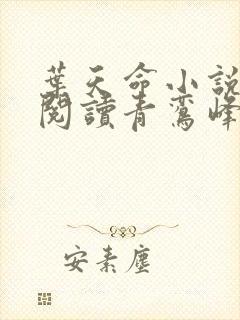 葉天命小說
閱讀青鸞峰
安素塵